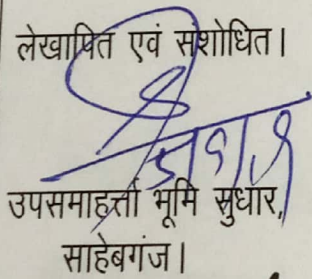 लेखापित एवं संशोधित।
उपसमाहर्त्ता भूमि सुधार,
साहेबगंज।